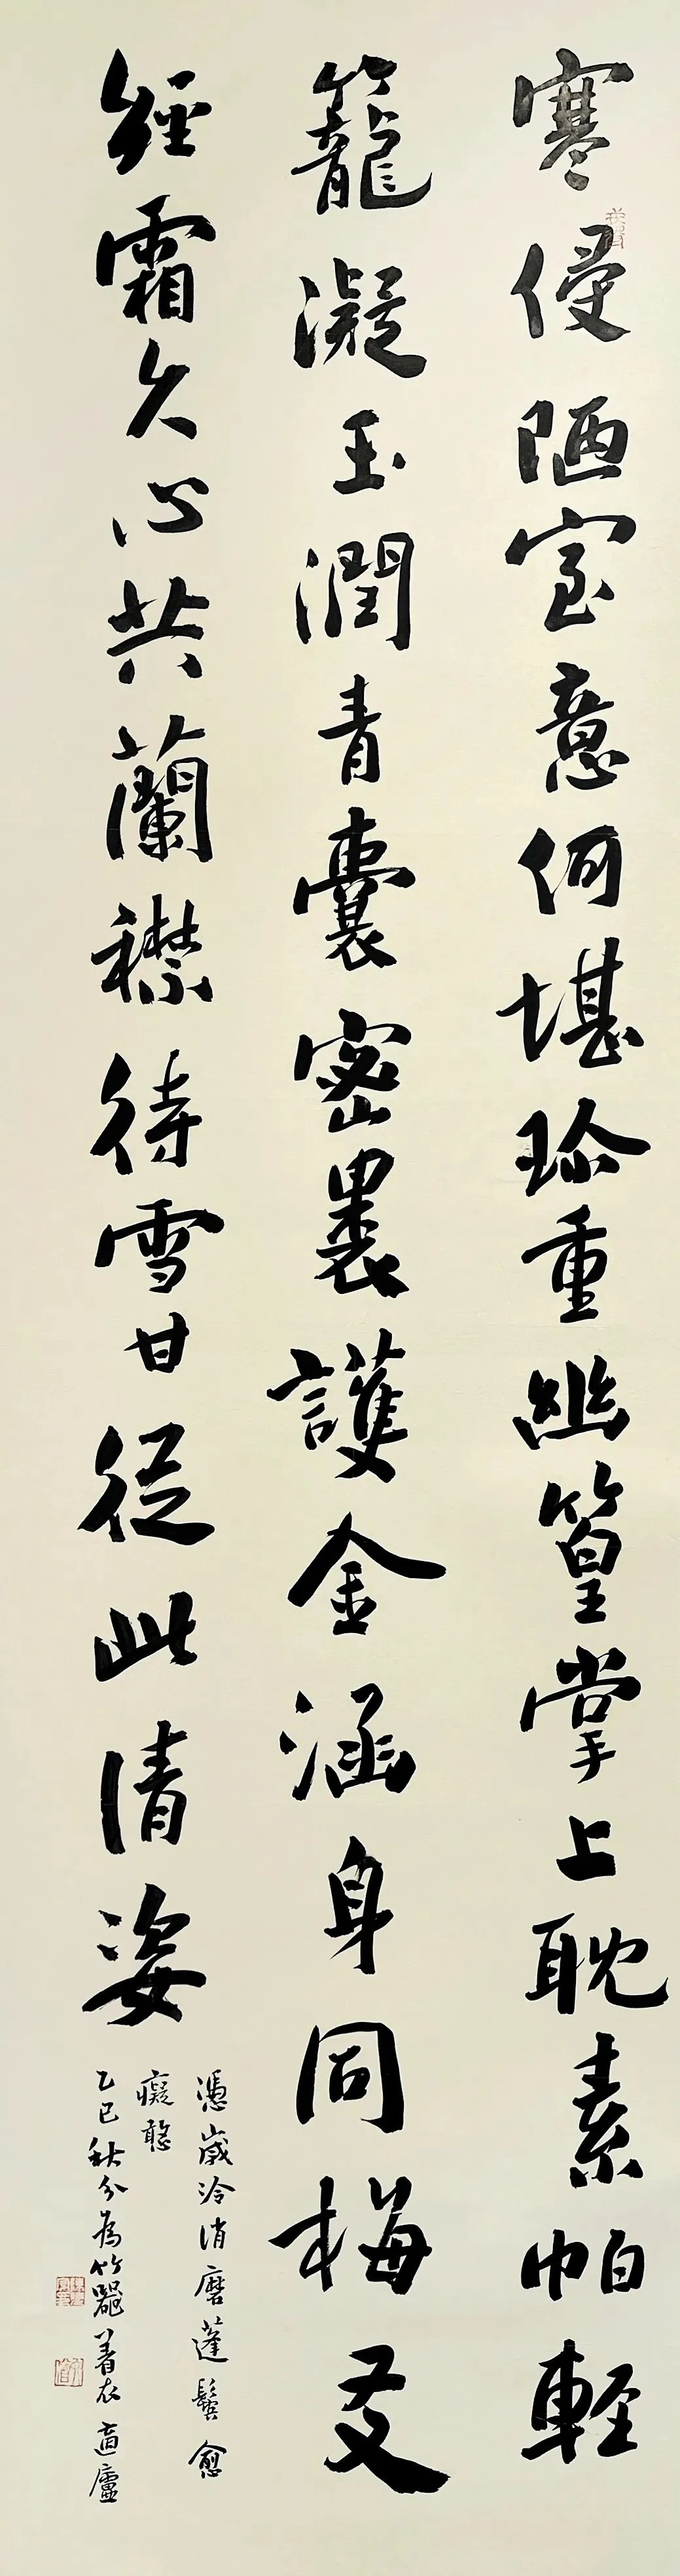 寒侵陋室意何堪珍重幽篁掌上耽素帕輕
籠凝玉潤青囊密裹護金涵身同梅友
經霜久心共蘭襟待雪甘從此清姿
憑歲冷消磨蓬鬢愈
癡憨
乙巳秋分為竹器著衣適廬